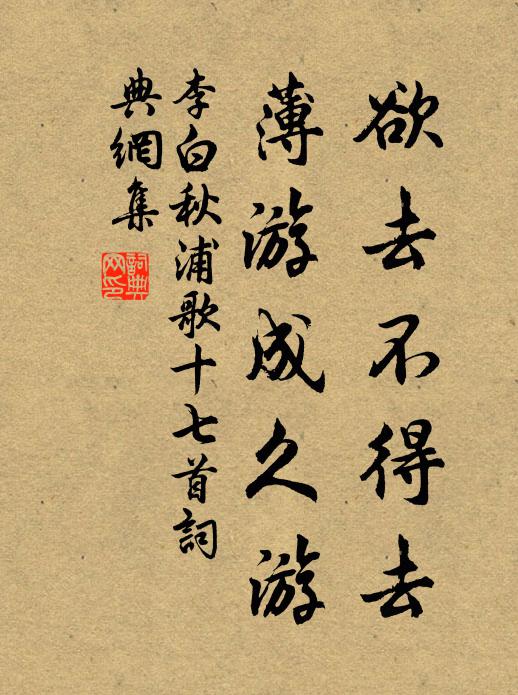 欲去不得去
薄游成久游
李白秋浦歌十七首詞
典網集
詞典网印